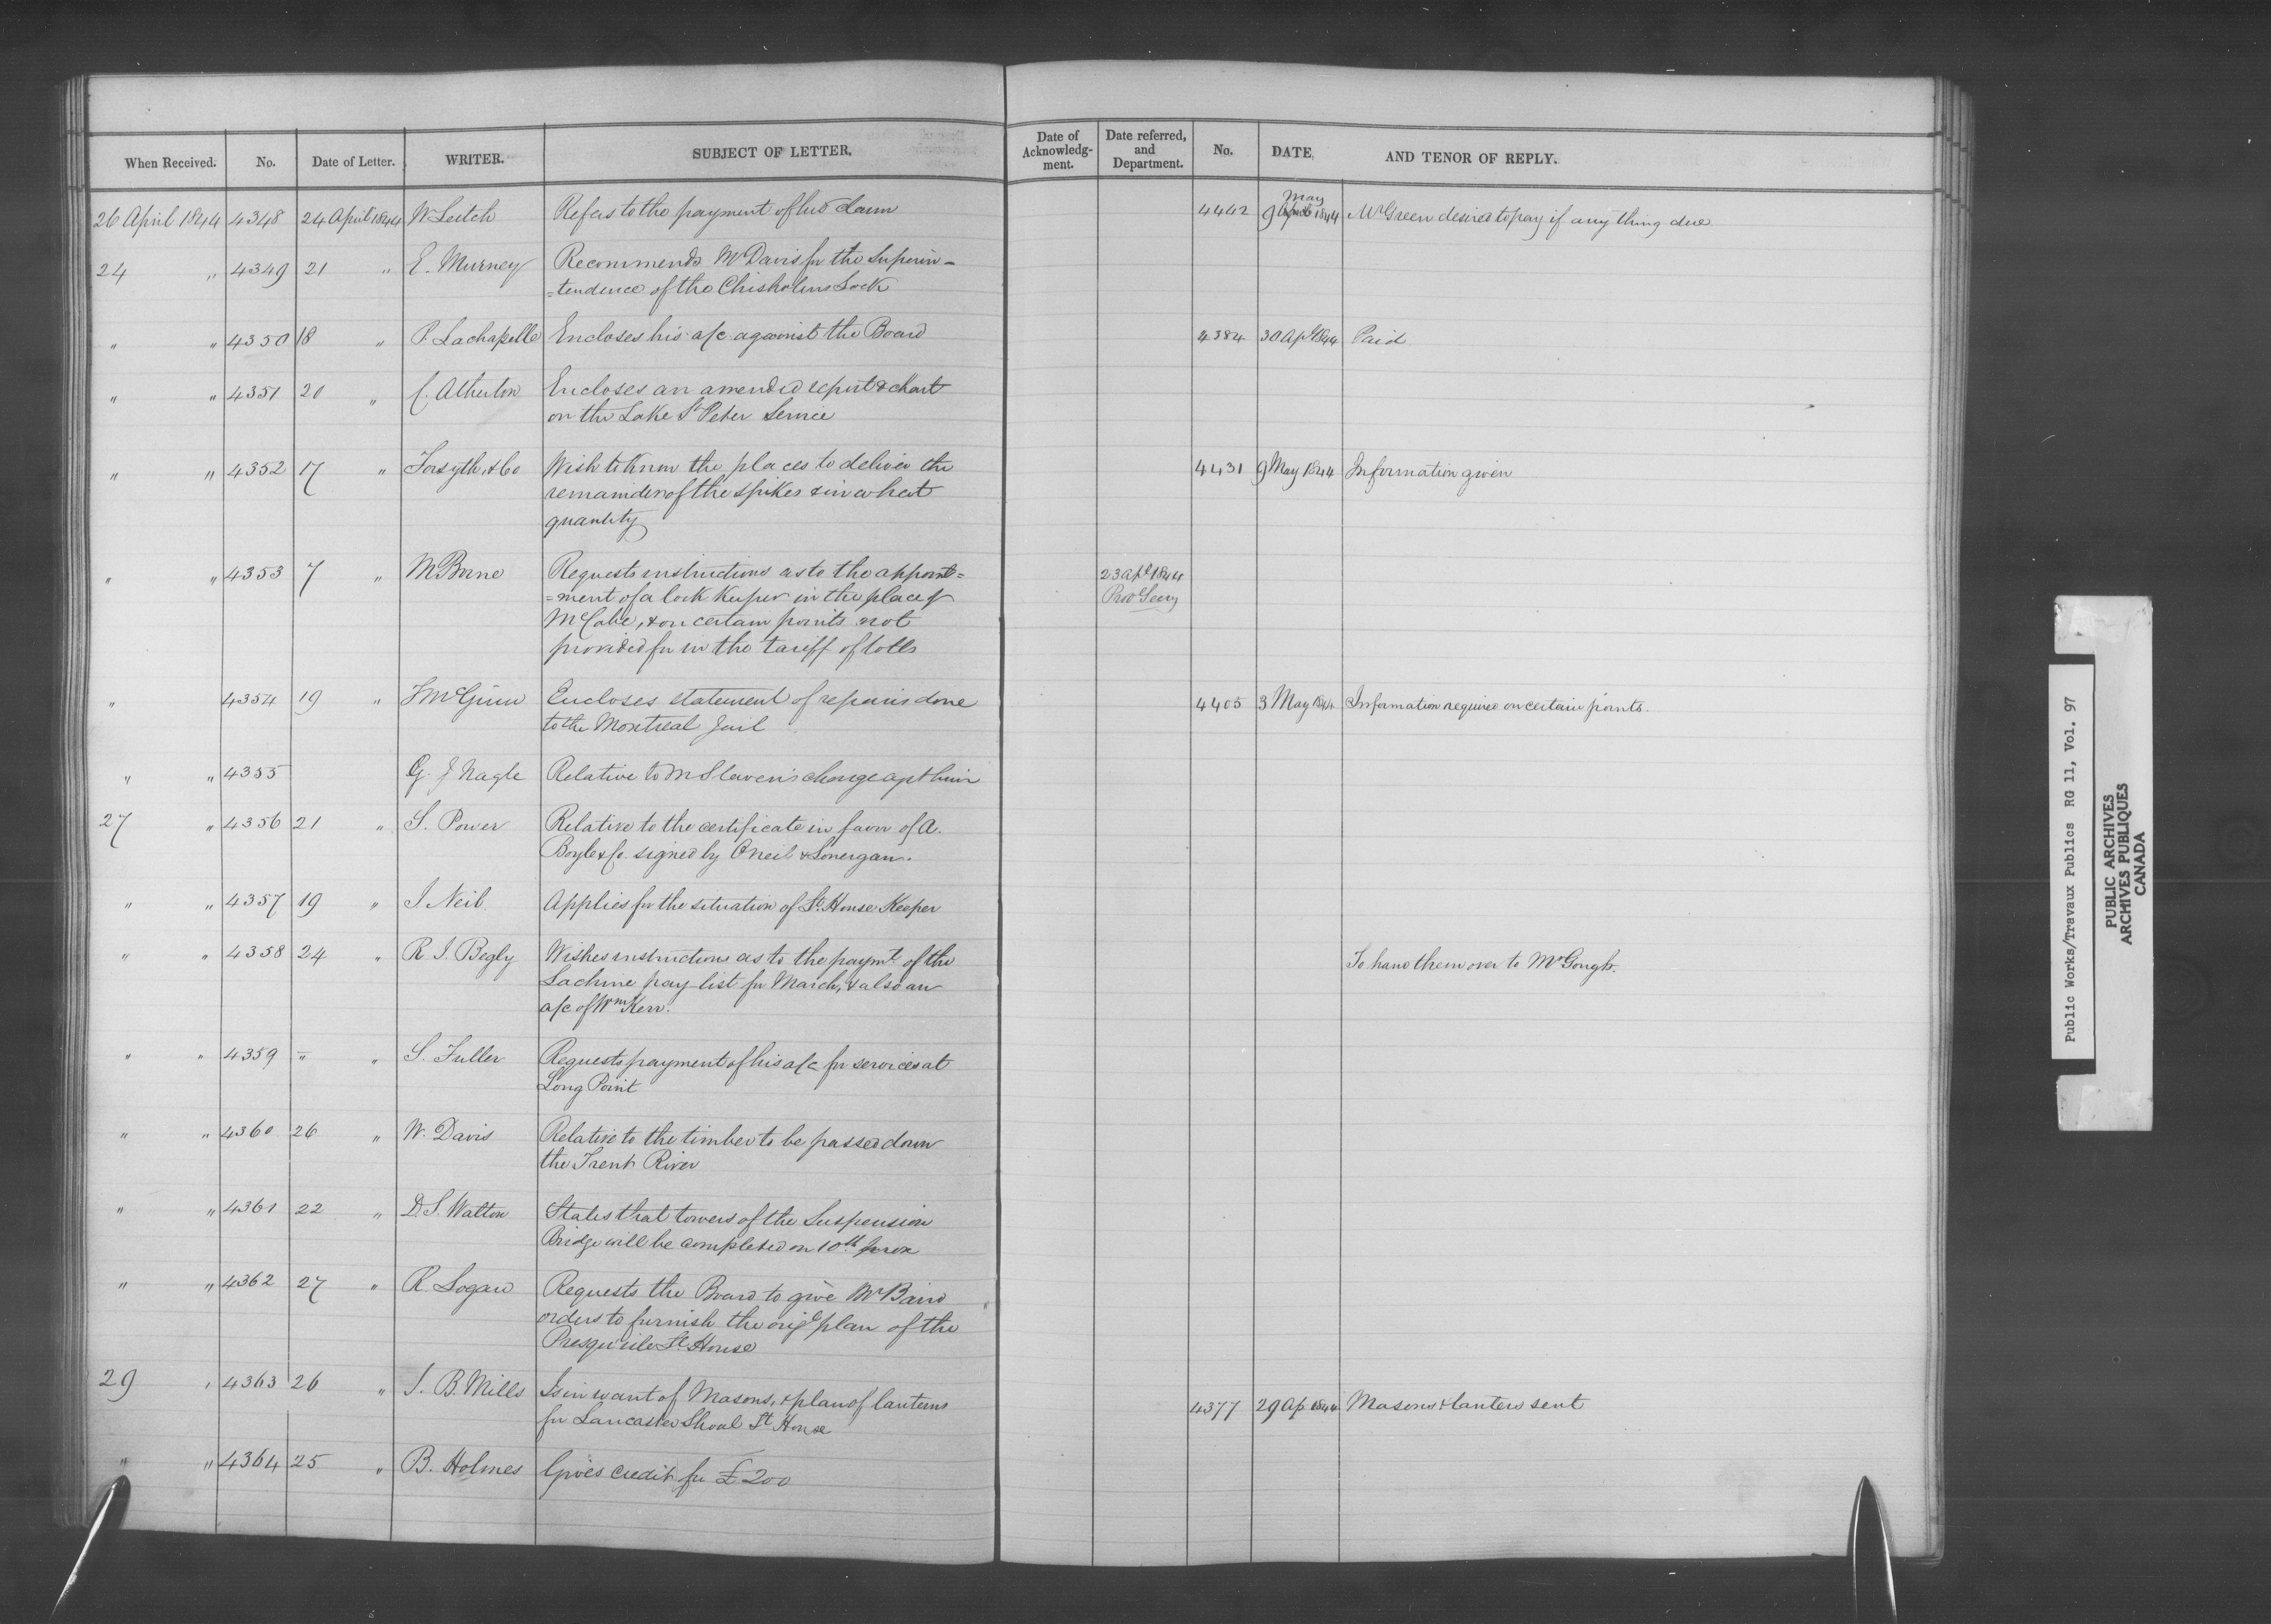 When Received. No. Date of Letter. WRITER. SUBJECT OF LETTER. Date of Acknowledg-ment. Date referred, and Department. No. DATE. AND TENOR OF REPLY.
26 April 1844 4348 24 April 1844 W Leitch Refers to the payment of his claim 4442 9 May April 1844 Mr Green desired to pay if any thing due
24 " 4349 21 " E. Murney Recommends Mr Davis for the Superin=
=tendence of the Chisholms Lock
" " 4350 18 " P. Lachapelle Encloses his a/c against the Board 4384 30 Apl 1844 Paid
" " 4351 20 " C. Atherton Encloses an amended report & chart
on the Lake St Peter Service
" " 4352 17 " Forsyth & Co Wish to know the places to deliver the 4431 9 May 1844 Information given
remainder of the spikes & in what
quantity
" " 4353 7 " M Brne Requests instructions as to the appoint= 23 Apl 1844
=ment of a lock keeper in the place of Prov Secy
McCabe, & on certain points not
provided for in the tariff of tolls
" 4354 19 " T McGinn Encloses statement of repairs done 4405 3 May 1844 Information required on certain points.
to the Montreal Jail
" " 4355 G. J Nagle Relative to Mr Slaven's charge agst him
27 " 4356 21 " S. Power Relative to the certificate in favor of A.
Boyle & Co. signed by Oneil & Lonergan.
" " 4357 19 " J Neil Applies for the situation of Lt. House Keeper
" " 4358 24 " R J. Begly Wishes instructions as to the paymt. of the To hand them over to Mr Gough.
Lachine pay list for March, & also an
a/c of Wm Kerr.
" " 4359 " " S. Fuller Requests payment of his a/c for services at
Long Point
" " 4360 26 " W. Davis Relative to the timber to be passed down
the Trent River
" " 4361 22 " D. S. Walton States that towers of the Suspension
Bridge will be completed on 10th prox
" " 4362 27 " R. Logan Requests the Board to give Mr Baird
orders to furnish the origl plan of the
Presqu'ile Lt House
29 " 4363 26 " J. B. Mills Is in want of Masons, & plan of lanterns 4377 29 Ap. 1844 Masons & lantern sent
for Lancaster Shoal Lt House
" " 4364 25 " B. Holmes Gives credit for £200
Public Works/Travaux Publics RG 11, Vol. 97
PUBLIC ARCHIVES
ARCHIVES PUBLIQUES
CANADA